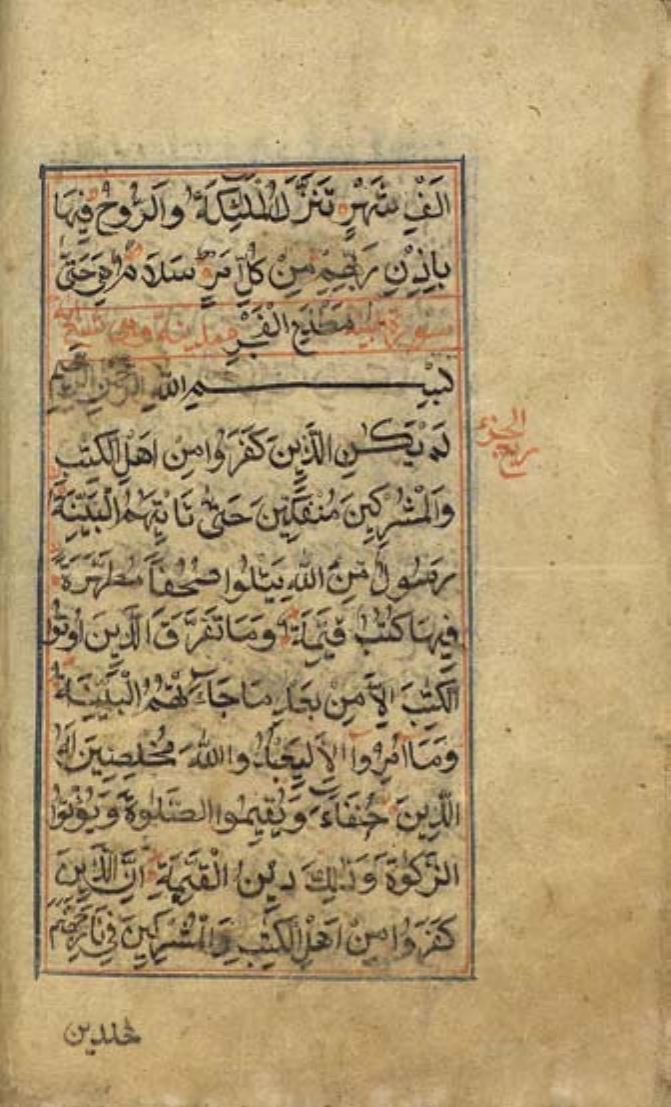 اَلْفِ شَهْرٍ تَنَزَّلُ الْمَلٰٓئِكَةُ وَالرُّوْحُ فِيْهَا
بِاِذْنِ رَبِّهِمْ مِنْ كُلِّ اَمْرٍ سَلٰمٌ هِىَ حَتّٰى
مَطْلَعِ الْفَجْرِ
بِسْمِ اللّٰهِ الرَّحْمٰنِ الرَّحِيْمِ
لَمْ يَكُنِ الَّذِيْنَ كَفَرُوْا مِنْ اَهْلِ الْكِتٰبِ
الجزء
ربع
وَالْمُشْرِكِيْنَ مُنْفَكِّيْنَ حَتّٰى تَاْتِيَهُمُ الْبَيِّنَةُ
رَسُوْلٌ مِّنَ اللّٰهِ يَتْلُوْا صُحُفًا مُّطَهَّرَةً
فِيْهَا كُتُبٌ قَيِّمَةٌ وَمَا تَفَرَّقَ الَّذِيْنَ اُوْتُوا
الْكِتٰبَ اِلَّا مِنْ بَعْدِ مَا جَآءَتْهُمُ الْبَيِّنَةُ
وَمَآ اُمِرُوْٓا اِلَّا لِيَعْبُدُوا اللّٰهَ مُخْلِصِيْنَ لَهُ
الدِّيْنَ حُنَفَآءَ وَيُقِيْمُوا الصَّلٰوةَ وَيُؤْتُوا
الزَّكٰوةَ وَذٰلِكَ دِيْنُ الْقَيِّمَةِ اِنَّ الَّذِيْنَ
كَفَرُوْا مِنْ اَهْلِ الْكِتٰبِ وَالْمُشْرِكِيْنَ فِىْ نَارِ جَهَنَّمَ
خٰلدين